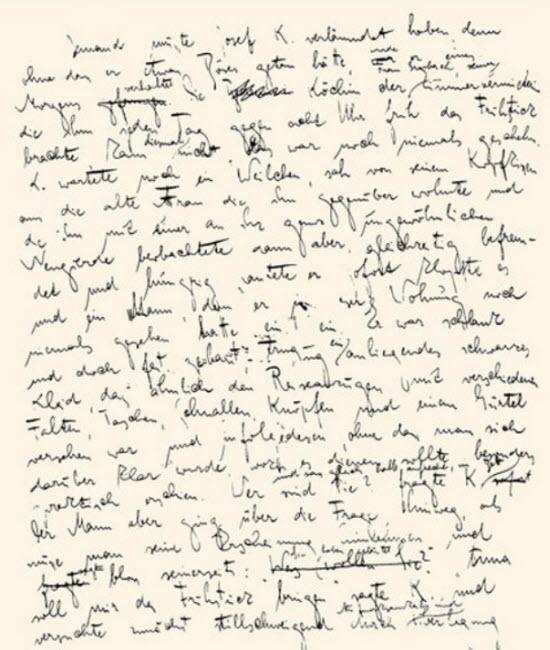 Jemand musste Josef K. verläumdet haben denn
ohne dass er etwas Böses getan hätte,
Morgens verhaftet Die Köchin der Zimmervermieterin
die ihm jeden Tag gegen acht Uhr früh das Frühstück
brachte kam diesmal nicht Das war noch niemals geschehn.
K. wartete noch ein Weilchen, sah von seinem Kopfkissen
aus die alte Frau die ihm gegenüber wohnte und
die ihn mit einer an ihr ganz ungewöhnlichen
Neugierde beobachtete dann aber, gleichzeitig befrem-
det und hungrig, läutete er Sofort klopfte es
und ein Mann den er in Wohnung noch
niemals gesehen hatte trat ein Er war schlank
und doch fest gebaut, er trug ein anliegendes schwarzes
Kleid, das ähnlich den Reiseanzügen mit verschiedenen
Falten, Taschen, Schnallen, Knöpfen und einem Gürtel
versehen war und infolgedessen ohne dass man sich
darüber klar wurde, wozu es dienen sollte, besonders
praktisch erschien. Wer sind Sie? fragte K.
Der Mann aber ging über die Frage hinweg, als
müsse man seine Erscheinung hinnehmen und
sagte bloss seinerseits: Anna
soll mir das Frühstück bringen sagte K. und
versuchte zunächst stillschweigend durch